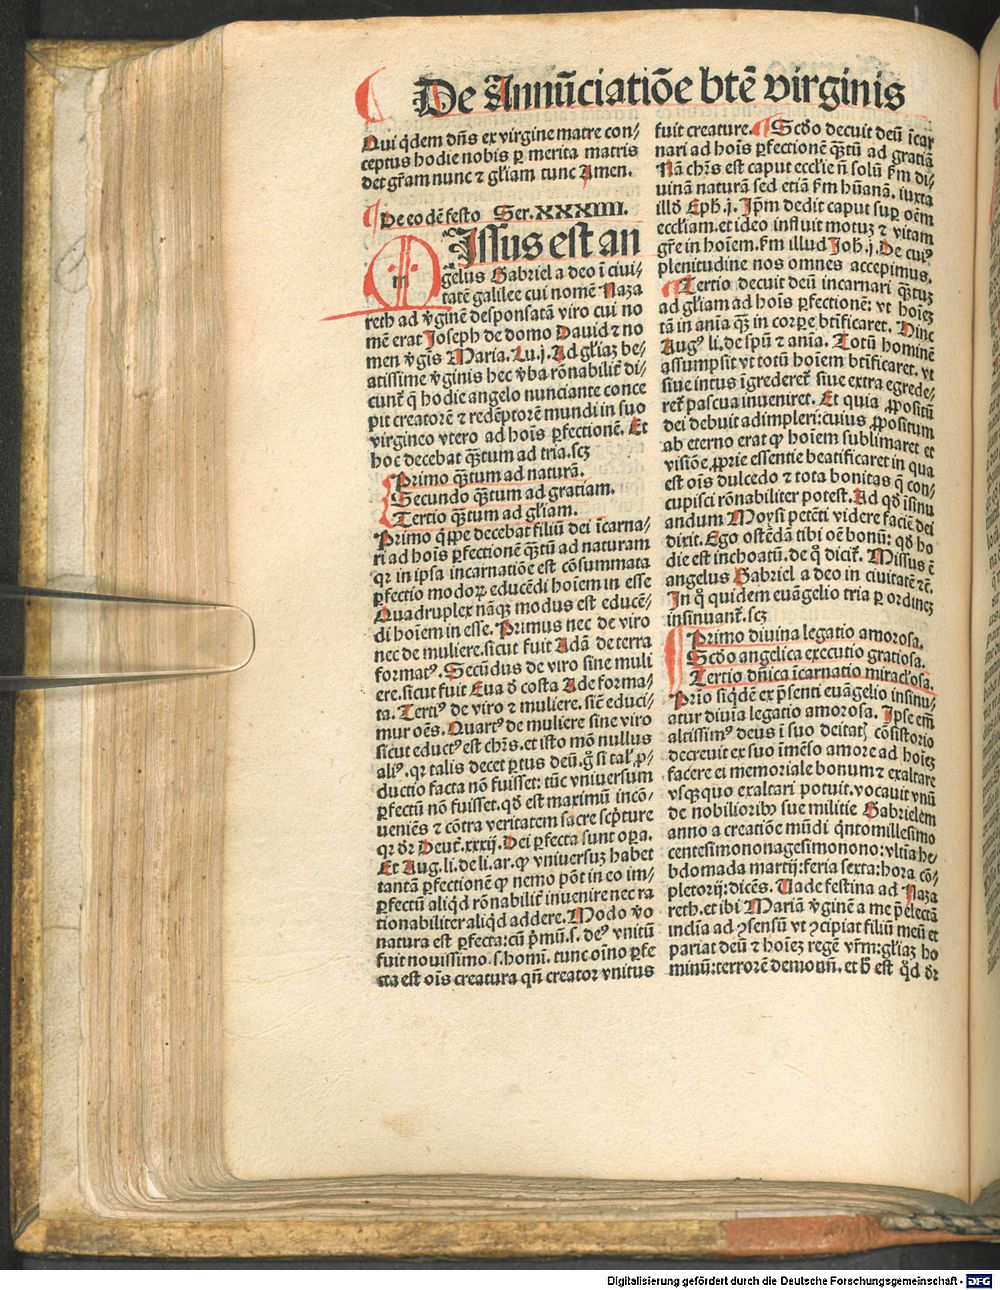 De Annūciatiōe btē virginis
Qui q̇dem dn̄s ex virgine matre con⸗
ceptus hodie nobis ꝑ merita matris
det gr̄am nunc ⁊ gl̄iam tunc Amen.
De eo dē festo Ser. XXXIIII.
MIssus est an
gelus Gabriel a deo ī ciui⸗
tatē galilee cui nomē Naza
reth ad v̄ginē desponsatā viro cui no
mē erat Joseph de domo Dauid ⁊ no
men v̄gīs Maria. Lu.j. Ad gl̄iaꝫ be⸗
atissime v̄ginis hec v̄ba rōnabilit̄ di⸗
cunt̄ q̄ hodie angelo nunciante conce
pit creatorē ⁊ redēptorē mundi in suo
virgineo vtero ad hoīs ꝑfectionē. Et
hoc decebat q̄ꝫtum ad tria. scꝫ
Primo q̄ꝫtum ad naturā.
Secundo q̄ꝫtum ad gratiam.
Tertio q̄ꝫtum ad gl̄iam.
Primo q̇ppe decebat filiū dei īcarna⸗
ri ad hoīs ꝑfectionē q̄ꝫtū ad naturam
qꝛ in ipsa incarnatiōe est cōsummata
ꝑfectio modoꝝ educēdi hoīem in esse
Quadruplex nāqꝫ modus est educē⸗
di hoīem in esse. Primus nec de viro
nec de muliere. sicut fuit Adā de terra
formatꝰ. Secūdus de viro sine muli
ere. sicut fuit Eua d̄ costa Ade forma⸗
ta. Tertiꝰ de viro ⁊ muliere. sic̄ educi⸗
mur oēs. Quartꝰ de muliere sine viro
sicut eductꝰ est chr̄s. et isto mō nullus
aliꝰ. qꝛ talis decet ꝑtus deū. g̊ si tal̄ ꝓ⸗
ductio facta nō fuisset: tūc vniuersum
ꝑfectū nō fuisset. qd̄ est maximū incō⸗
ueniēs ⁊ cōtra veritatem sacre scp̄ture
qꝛ dr̄ Deut̄.xxxij. Dei ꝑfecta sunt oꝑa.
Et Aug. li. de li. ar. ꝙ vniuersuꝫ habet
tantā ꝑfectionē ꝙ nemo pōt in eo im⸗
ꝑfectū aliq̇d rōnabilit̄ inuenire nec ra
tionabiliter aliq̇d addere. Modo v̊o
natura est ꝑfecta: cū p̄mū .s. deꝰ vnitū
fuit nouissimo .s. homī. tunc oīno ꝑfe
cta est oīs creatura qn̄ creator vnitus
fuit creature. Scd̄o decuit deū īcar
nari ad hoīs ꝑfectionē q̄ꝫtū ad gratiā
Nā chr̄s est caput eccl̄ie n̄ solū ẜm di⸗
uinā naturā sed etiā ẜm hūanā. iuxta
illd̄ Eph.j. Ip̄m dedit caput suꝑ oēm
eccl̄iam. et ideo influit motuꝫ ⁊ vitam
gr̄e in hoīem. ẜm illud Joh̄.j. De cuiꝰ
plenitudine nos omnes accepimus.
Tertio decuit deū incarnari q̄ꝫtuꝫ
ad gl̄iam ad hoīs ꝑfectionē: vt hoīeꝫ
tā in aīa q̄ꝫ in corꝑe btīficaret. Hinc
Augꝰ li. de spū ⁊ aīa. Totū hominē
assumpsit vt totū hoīem btīficaret. vt
siue intus īgrederet̄ siue extra egrede⸗
ret̄ pascua inueniret. Et quia ꝓpositū
dei debuit adimpleri: cuius ꝓpositum
ab eterno erat ꝙ hoīem sublimaret et
visiōe ꝓprie essentie beatificaret in qua
est oīs dulcedo ⁊ tota bonitas q̄ con⸗
cupisci rōnabiliter potest. Ad qd̄ īsinu
andum Moysi petēti videre faciē dei
dixit. Ego ostēdā tibi oē bonū: qd̄ ho
die est inchoatū. de q̊ dicit̄. Missus ē
angelus Gabriel a deo in ciuitatē ⁊c̄.
In q̊ quidem euāgelio tria ꝑ ordineꝫ
insinuant̄. scꝫ
Primo diuina legatio amorosa.
Scd̄o angelica executio gratiosa.
Tertio dn̄ica īcarnatio miracl̄osa.
Prīo siqdē ex p̄senti euāgelio insinu⸗
atur diuīa legatio amorosa. Ipse em̄
altissimꝰ deus ī suo deitatꝭ cōsistorio
decreuit ex suo īmēso amore ad hoīeꝫ
facere ei memoriale bonum ⁊ exaltare
vsqꝫquo exaltari potuit. vocauit vnū
de nobilioribꝰ sue militie Gabrielem
anno a creatiōe mūdi q̇ntomillesimo
centesimononagesimonono: vltīa he⸗
bdomada martij: feria sexta: hora cō⸗
pletorij: dicēs. Uade festina ad Naza
reth. et ibi Mariā v̄ginē a me p̄electā
inclīa ad ꝯsensū vt ꝯcipiat filiū meū et
pariat deū ⁊ hoīeꝫ regē vr̄m: gl̄iaꝫ ho
minū: terrorē demonū. et h̄ est q̊d dr̄
Digitalisierung gefördert durch die Deutsche Forschungsgemeinschaft - DFG